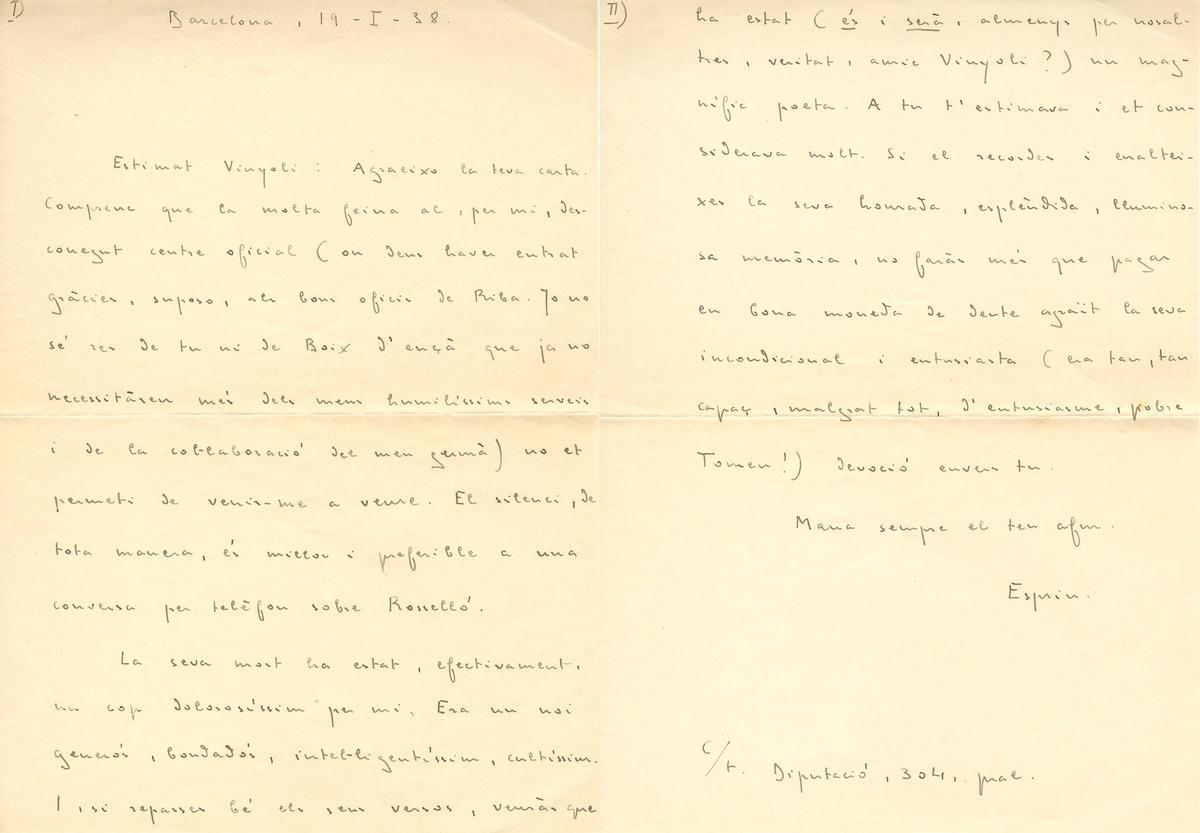 I)
Barcelona, 19-I-38.
Estimat Vinyoli: Agraeixo la teva carta.
Comprenc que la molta feina al, per mi, des-
conegut centre oficial (on deus haver entrat
gràcies, suposo, als bons oficis de Riba. Jo no
sé res de tu ni de Boix d'ençà que ja no
necessitàreu més dels meus humilíssims serveis
i de la col·laboració del meu germà) no et
permeti de venir-me a veure. El silenci, de
tota manera, és millor i preferible a una
conversa per telèfon sobre Rosselló.
La seva mort ha estat, efectivament,
un cop dolorosíssim per mi. Era un noi
generós, bondadós, intel·ligentíssim, cultíssim.
I, si repasses bé els seus versos, veuràs que
II)
ha estat (és i serà, almenys per nosal-
tres, veritat, amic Vinyoli?) un mag-
nífic poeta. A tu t'estimava i et con-
siderava molt. Si el recordes i enaltei-
xes la seva honrada, esplèndida, llumino-
sa memòria, no faràs més que pagar
en bona moneda de deute agraït la seva
incondicional i entusiasta (era tan, tan
capaç, malgrat tot, d'entusiasme, pobre
Tomeu!) devoció envers tu.
Mana sempre el teu afm.
Espriu.
C/t. Diputació, 304, pral.